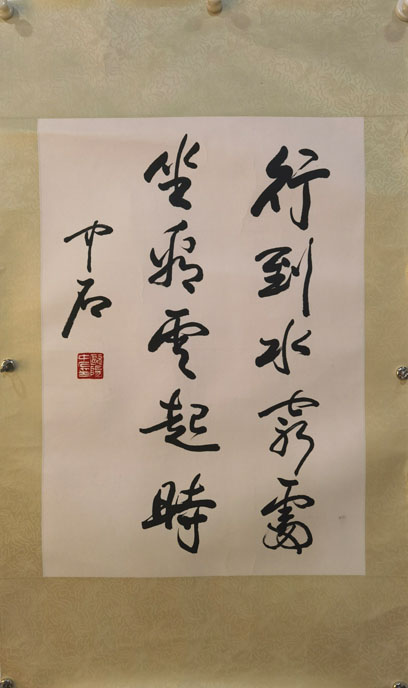 行到水窮處
坐看雲起時
中石